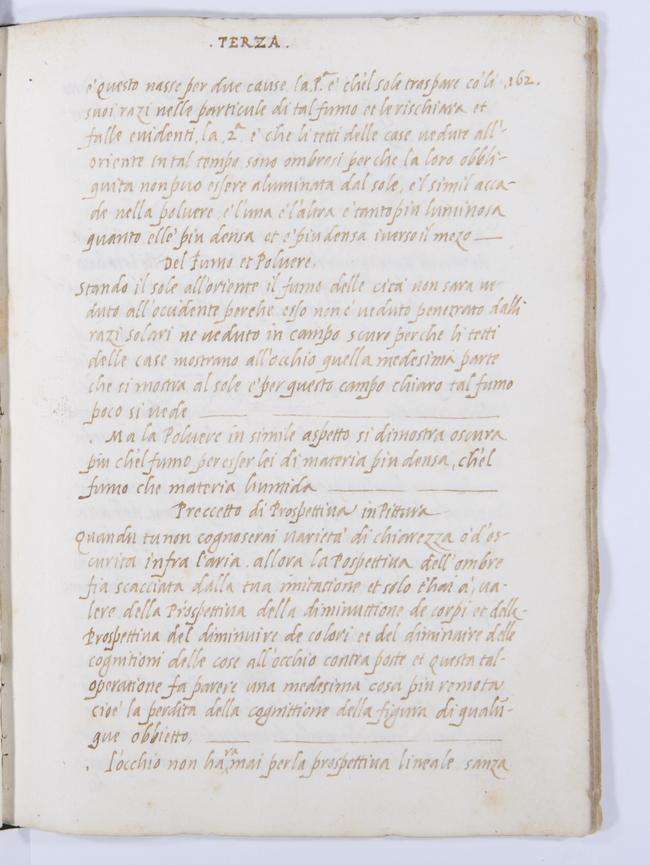 . TERZA .
.162.
e questo nasse per due cause. la P.ª e ch'el sole traspare co li
suoi razi nelle particule di tal fumo et le rischiara et
falle evidenti. la 2ª. e che li tetti delle case vedute all'-
oriente in tal tempo sono ombrosi perche la loro obbli-
quita non puo essere aluminata dal sole, e'l simil acca-
de nella poluere, e l'una e l'altra e tanto piu luminosa
quanto elle piu densa et e piu densa inverso il mezo
Del fumo et Poluere.
Stando il sole all'oriente il fumo delle cità non sara ve-
duto all'occidente perche esso non è veduto penetrato dalli
razi solari ne veduto in campo scuro perche li tetti
delle case mostrano all'occhio quella medesima parte
che si mostra al sole e per questo campo chiaro tal fumo
poco si vede
. Ma la Poluere in simile aspetto si dimostra oscura
piu ch'el fumo per esser lei di materia piu densa, ch'el
fumo che materia humida
Preccetto di Prospettiva in Pittura
Quando tu non cognoserai varieta' di chiarezza o d'os-
curita infra l'aria. allora la Pospettiva dell'ombre
fia scacciata dalla tua imitatione et solo t'hai a' va-
lere della Prospettiva della diminuttione de corpi et della
Prospettiva del diminuire de colori et del diminuire delle
cognitioni delle cose all'occhio contraposte et questa tal-
operatione fa parere una medesima cosa piu remota
cioe' la perdita della cognittione della figura di qualũ-
que obbietto.
. L'occhio non havra mai per la prospettiva lineale sanza